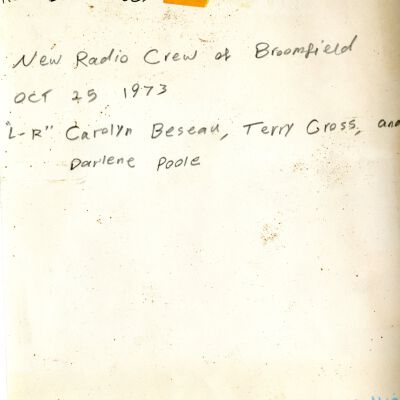 New Radio Crew of Broomfield
OCT 25 1973
"L-R" Carolyn Beseau, Terry Gross, and
Darlene Poole